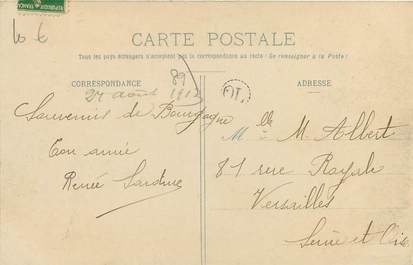 10 €
CARTE POSTALE
Tous les pays étrangers n'acceptent pas la correspondance au recto! (Se renseigner à la Poste)
CORRESPONDANCE
ADRESSE
89
27 août 1913
Souvenir de Bourgogne
Ton amie
Renée Sardine
Melle M Albert
81 rue Royale
Versailles
Seine et Oise